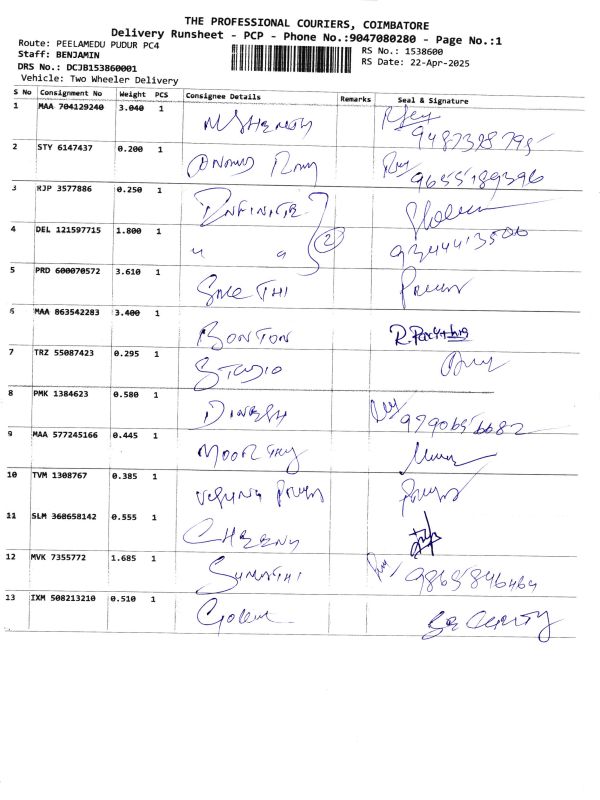 THE PROFESSIONAL COURIERS, COIMBATORE
Delivery Runsheet - PCP - Phone No.:9047080280 - Page No.:1
Route: PEELAMEDU PUDUR PC4
Staff: BENJAMIN
DRS No.: DCJB153860001
Vehicle: Two Wheeler Delivery
RS No.: 1538600
RS Date: 22-Apr-2025
S No Consignment No Weight PCS Consignee Details Remarks Seal & Signature
1 MAA 704129240 3.040 1
9487328795
2 STY 6147437 0.200 1
9655189396
3 RJP 3577886 0.250 1 INFINITE
4 DEL 121597715 1.800 1 " " 2
9344413506
5 PRD 600070572 3.610 1
6 MAA 863542283 3.400 1 BONTON
7 TRZ 55087423 0.295 1 STUDIO
8 PMK 1384623 0.580 1 DINESH
9790656682
9 MAA 577245166 0.445 1 MOORTHY
10 TVM 1308767 0.385 1
11 SLM 368658142 0.555 1
12 MVK 7355772 1.685 1 SUMATHI
9865846464
13 IXM 508213210 0.510 1 Gokul